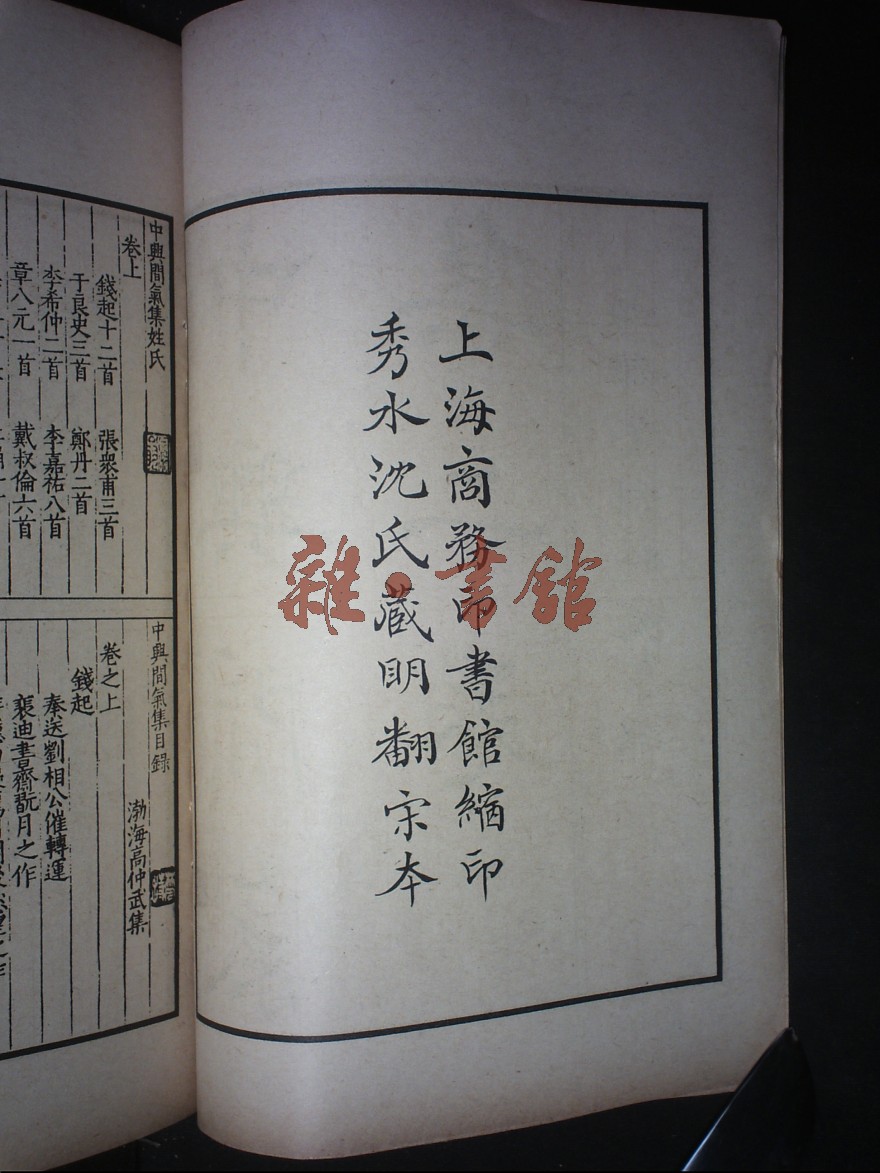 上海商務印書館縮印
秀水沈氏藏明翻宋本
雜·書館
中興間氣集姓氏
卷上
錢起十二首 張衆甫三首
于良史三首 鄭丹二首
李希仲二首 李嘉祐八首
章八元一首 戴叔倫六首
中興間氣集目錄
渤海高仲武集
卷之上
錢起
奉送劉相公催轉運
裴迪書齋翫月之作